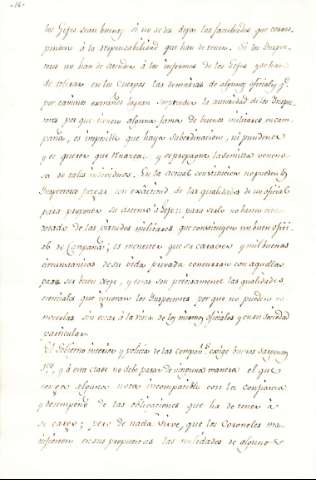 los Gefes sean buenos si no se les dejan las facultades que corres-
ponden à la responsabilidad que han de tener. Si los Inspec-
tores no han de atender à los informes de los Gefes y se han
de tolerar en los Cuerpos las de algunos oficiales q.e
por caminos la autoridad de los Inspec-
tores por que tienen alguna fama de buenos militares en cam-
paña, es imposible que haya subordinacion, ni prudencia
y es querer que se y se propague la semilla veneno-
sa de tales individuos. En la actual constitucion no pueden los
Inspectores juzgar con exâctitud de las qualidades de un oficial
para proponer su ascenso à Gefe; pues para serlo no bastan
de las virtudes militares que constituyen un buen ofici-
al de Compañia; es menester que su caracter y mil buenas
circunstancias de su vida privada concurran con aquellas
para ser buen Gefe, y estas son precisamente las qualidades
esenciales que ignoran los Inspectores, por que no pueden co-
nocerlas sin estar à la vista de los mismos oficiales y en su sociedad
particular.
El Gobierno interior y politico de las compan.s exîge buenos Sargen-
tos, y à esta clase no debe pasar de ninguna manera el que
tenga alguna nota incompatible con la confianza
y desempeño de las obligaciones que ha de tener à
su cargo; pero de nada sirve, que los Coroneles ma-
nifiesten en sus propuestas las nulidades de alguno